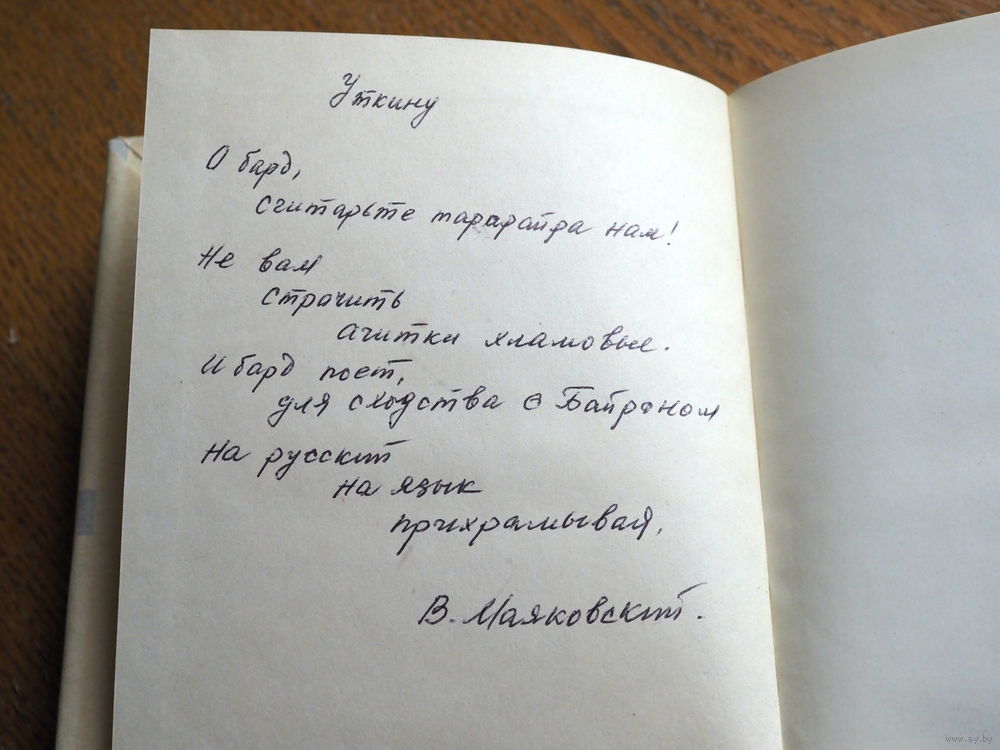 Уткину
О бард,
сгитарьте тарарайра нам!
Не вам
строчить
агитки хламовые.
И бард поет,
для сходства с Байроном
на русский
на язык
прихрамывая.
В. Маяковский.
www.ay.by